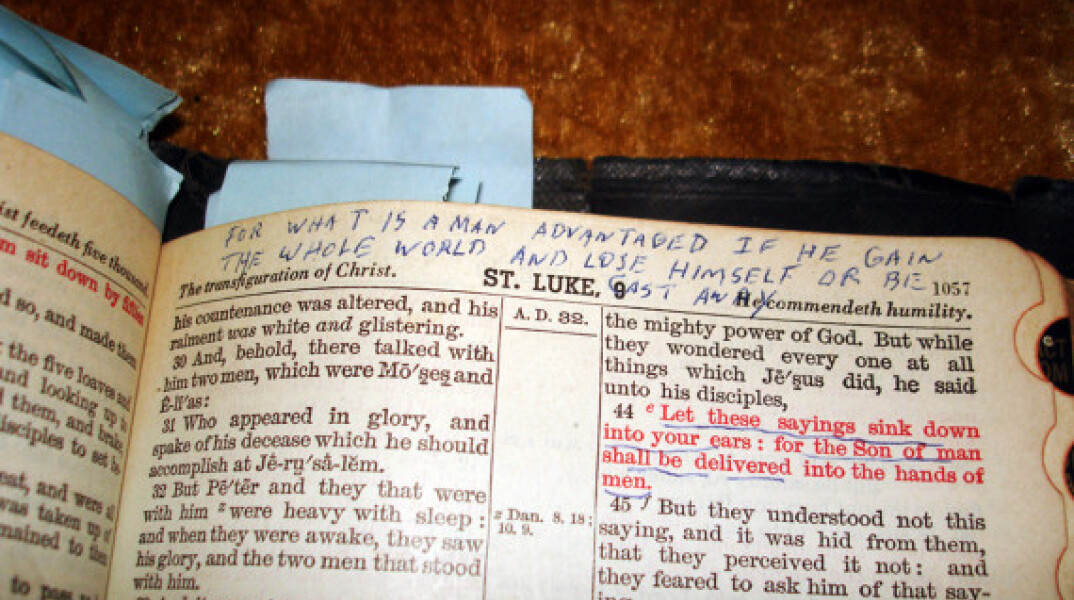 FOR WHAT IS A MAN ADVANTAGED IF HE GAIN
THE WHOLE WORLD AND LOSE HIMSELF OR BE
CAST AWAY
ist feedeth five thousand.
m sit down by fifties
d so, and made them
the five loaves and
and looking up to
d them, and brake,
disciples to set be
eat, and were all
was taken up of
mained to them
to pass
The transfiguration of Christ.
ST. LUKE, 9
He commendeth humility.
1057
his countenance was altered, and his
raiment was white and glistering.
30 And, behold, there talked with
him two men, which were Mō´ṣeṣ and
Ē-lī´as:
31 Who appeared in glory, and
spake of his decease which he should
accomplish at Jê-ru̱´sâ-lĕm.
32 But Pē´tẽr and they that were
with him ᶻ were heavy with sleep:
and when they were awake, they saw
his glory, and the two men that stood
with him.
A. D. 32.
ᶻ Dan. 8. 18;
10. 9.
the mighty power of God. But while
they wondered every one at all
things which Jē´ṣus did, he said
unto his disciples,
44 ᵉ Let these sayings sink down
into your ears: for the Son of man
shall be delivered into the hands of
men.
45 ᶠ But they understood not this
saying, and it was hid from them,
that they perceived it not: and
they feared to ask him of that say-